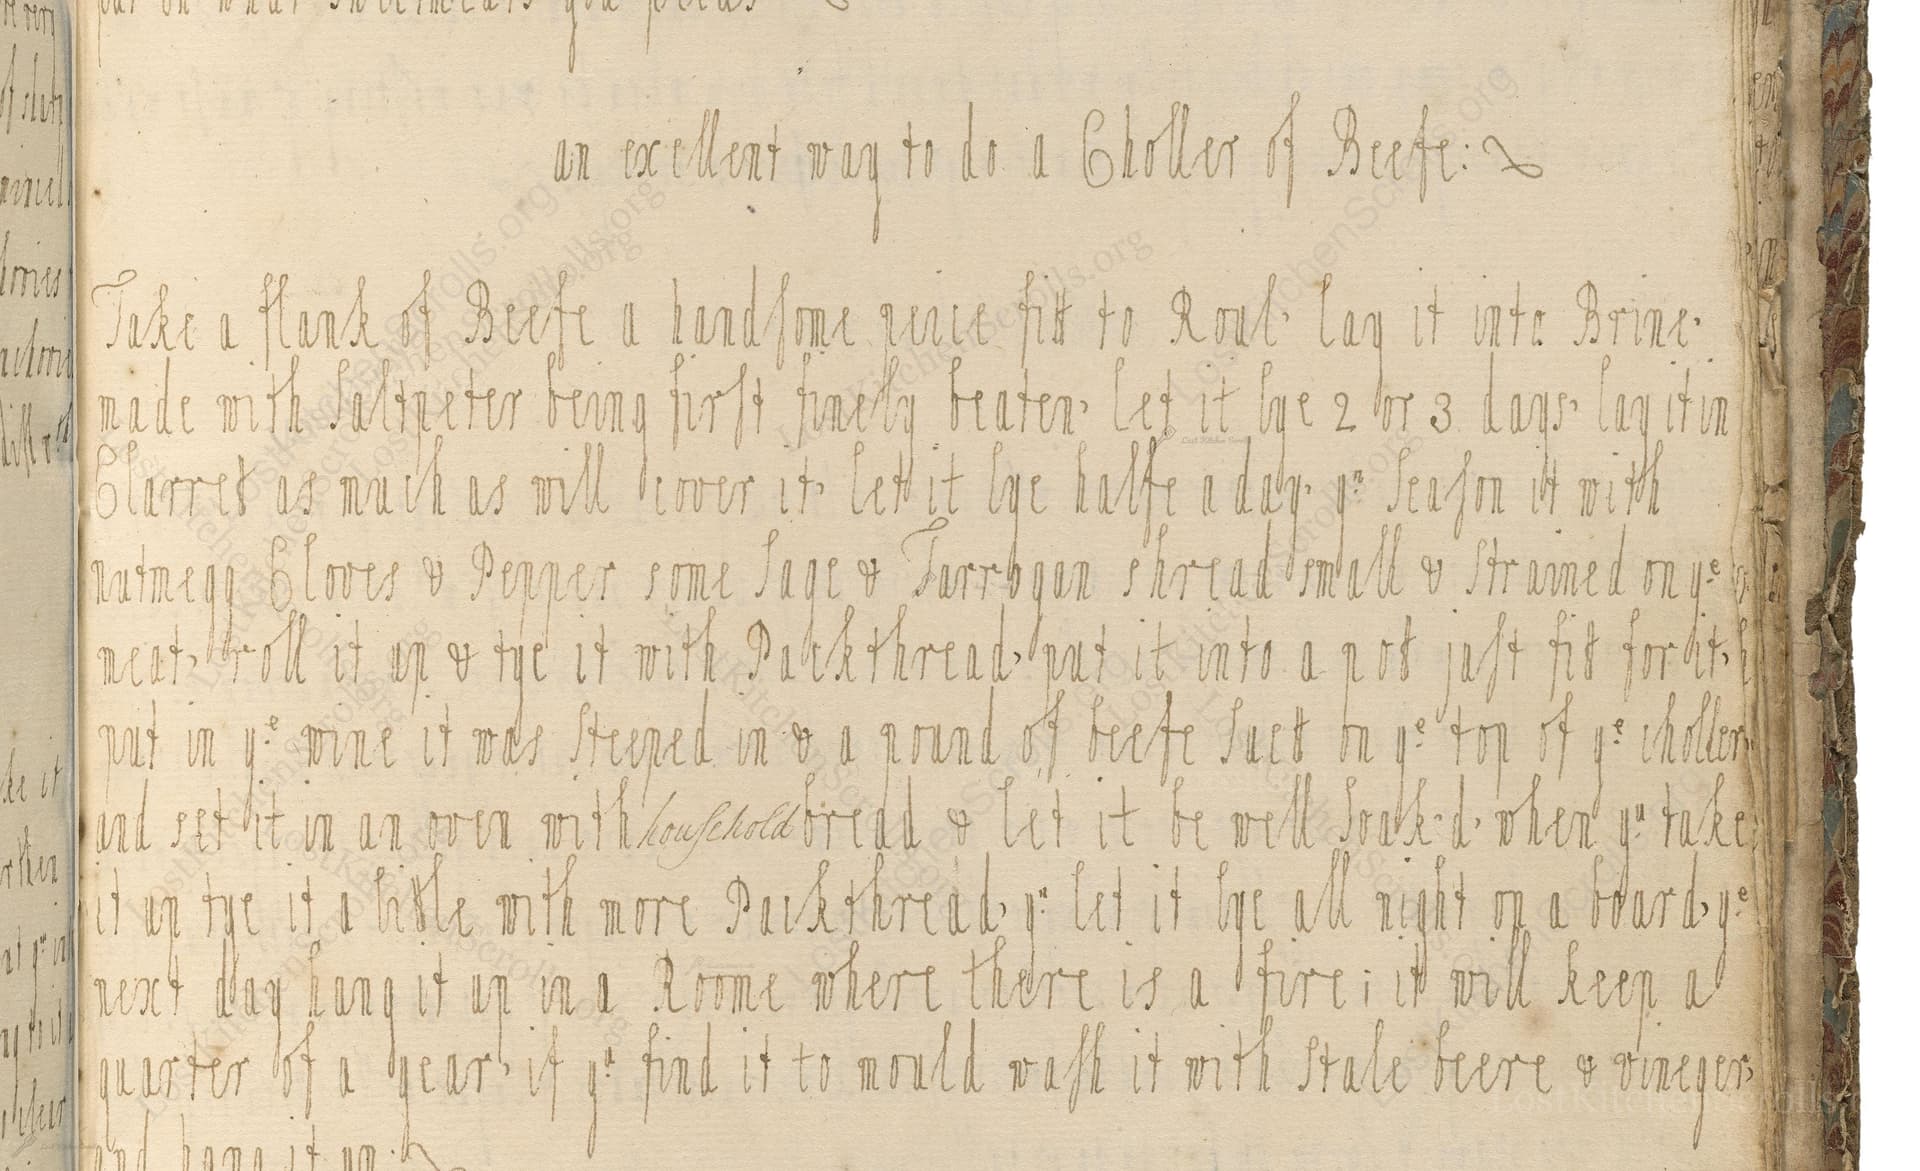 put on what sweetmeats you pleas
an exellent way to do a Choller of Beefe:
Take a flank of Beefe a handsome peice fitt to Roul, lay it into Brine,
made with Saltpeter being first finely beaten, let it lye 2 or 3 days, lay it in
Clarret as much as will cover it, let it lye halfe a day, yn Season it with
nutmegg Cloves & Pepper some Sage & Tarrogan shread small & strained on ye
meat, roll it up & tye it with Packthread, put it into a pott just fitt for it,
put in ye wine it was steeped in & a pound of beefe suett on ye top of ye choller,
and set it in an oven with household bread & let it be well Soak'd, when yu take
it up tye it a little with more Packthread, yn let it lye all night on a board, ye
next day hang it up in a Roome where there is a fire; it will keep a
quarter of a year, if yu find it to mould wash it with Stale beere & vineger,
and hang it up.
LostKitchenScrolls.org